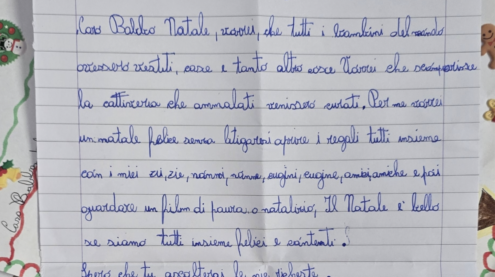 Caro Babbo Natale, vorrei, che tutti i bambini del mondo
avessero vestiti, case e tanto altre cose Vorrei che scomparisse
la cattiveria che ammalati venissero curati. Per me vorrei
un natale felice senza litigarsi aprire i regali tutti insieme
con i miei zii, zie, nonni, nonne, cugini, cugine, amici, amiche e poi
guardare un film di paura o natalizio, Il Natale e' bello
se siamo tutti insieme felici e contenti!
Spero che tu ascolterai le mie richieste.
Caro Babbo